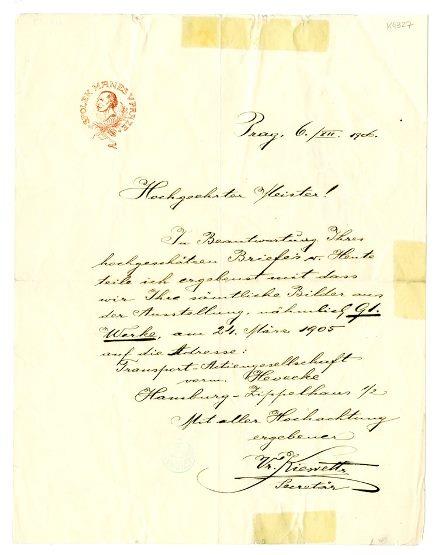 K4327
SPOLEK MÁNES V PRAZE
Prag, 6./VII. 190
Hochgeehrter Meister!
In Beantwortung Ihres
hochgeschätzen Briefes v. Heute
teile ich ergebenst mit dass
wir Ihre sämtliche Bilder aus
der Ausstellung, nähmlich 91.
Werke, am 24. März 1905
auf die Adresse:
Transport-Actiengesellschaft
vorm. Hevecke
Hamburg-Zippelhaus 1/2
Mit aller Hochachtung
ergebener
Secretär